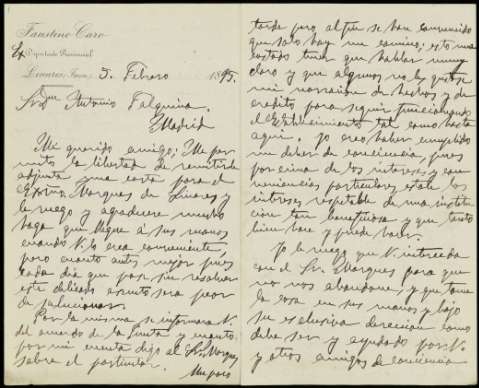 Faustino Caro
Ex Diputado Provincial
Linares, Jaen, 3. Febrero 1895.
Sr. Don Antonio
Madrid
Mi querido amigo; Me per
mito la libertad de remitirle
adjunta una carta para el
Exmo. Marques de Linares y
le ruego y agradecere mucho
haga que llegue á sus manos
cuando V. lo crea conveniente,
pero cuanto antes mejor pues
cada dia que pasa sin resolver
este delicado asunto sera peor
de solucionar.
Por la misma se informara V.
del acuerdo de la Junta y cuanto
por mi cuenta digo al Sr. Marques
sobre el particular.
Un poco
tarde pero al fin se han convencido
que solo hay un camino; esto me ha
costado tener que hablar muy
claro y que algunos no les guste
mi narracion de hechos y de
credito para seguir funcionando
el Establecimiento tal como hasta
aqui. Yo creo haber cumplido
un deber de conciencia, pues
por encima de los intereses y con
veniencias particulares, está los
intereses respetable de una institu
cion tan beneficiosa y que tanto
bien hace y puede hacer.
Yo le ruego que V. interceda
con el Sr. Marques para que
no nos abandone, y que tome
la cosa en sus manos y bajo
su exclusiva direccion como
debe ser y ayudado por V.
y otros amigos de conciencia